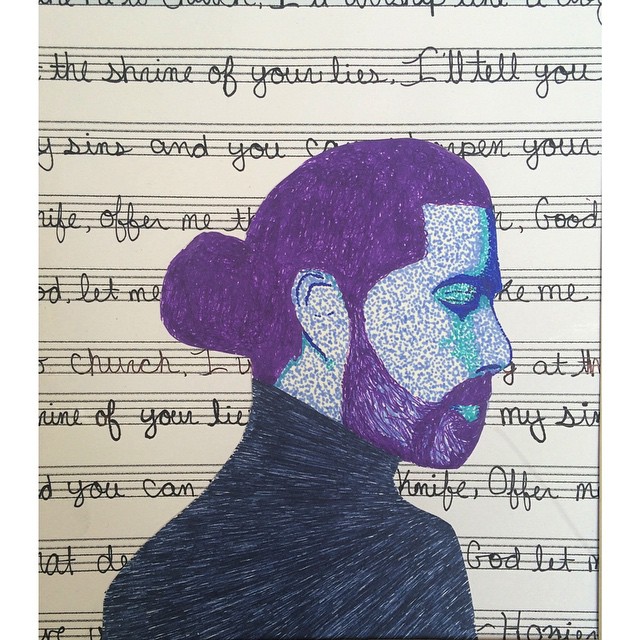 Church, I'll worship like a dog
the shrine of your lies, I'll tell you
y sins and you can sharpen your
nife, offer me th Good
od, let me ke me
church, I g at th
rine of your lie my sin
d you can Knife, Offer m
at de God let m
~Hozier